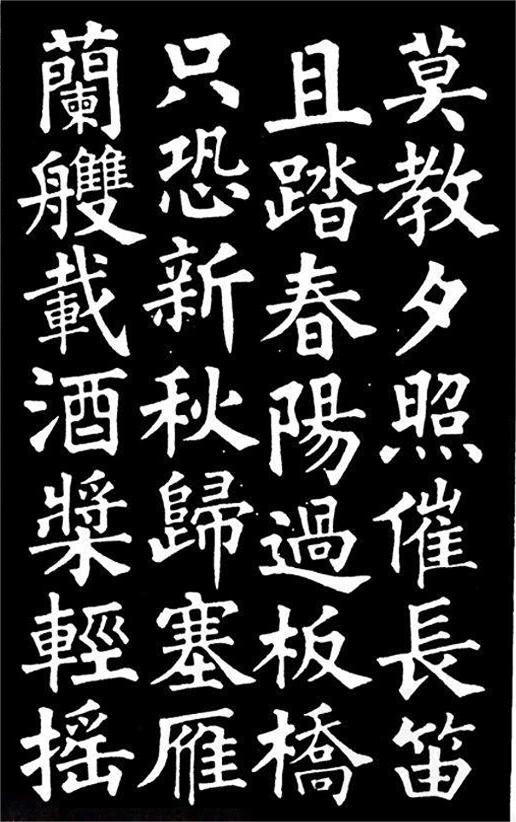 莫教夕照催長笛
且踏春陽過板橋
只恐新秋歸塞雁
蘭艭載酒槳輕搖